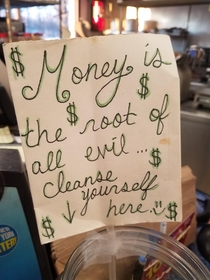 $ Money is $
the $ root of $
all evil... $
cleanse
yourself
$ ↓ here. :) $